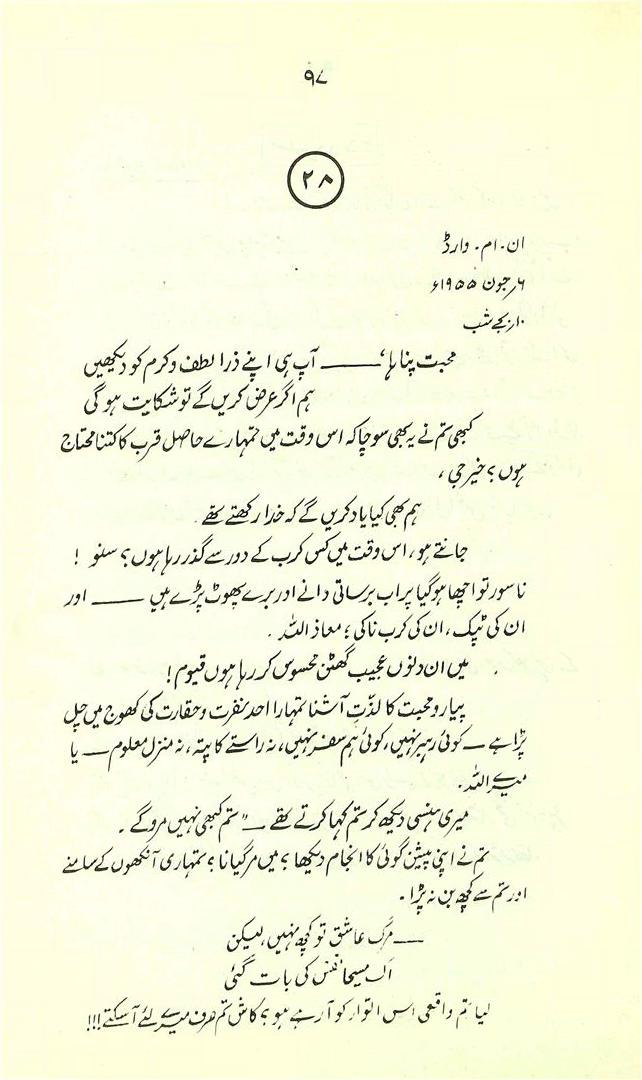 ۹۷
۲۸
ان۔ ام۔ وارڈ
۶؍جون ۱۹۵۵ء
۱۰؍بجے شب
محبت پناہا، ——— آپ ہی اپنے ذرا لطف و کرم کو دیکھیں
ہم اگر عرض کریں گے تو شکایت ہو گی
کبھی تم نے یہ بھی سوچا کہ اس وقت میں تمہارے حاصل قرب کا کتنا محتاج
ہوں؟ خیر جی،
ہم بھی کیا یاد کریں گے کہ خدا رکھتے تھے۔
جانتے ہو، اس وقت میں کس کرب کے دور سے گذر رہا ہوں؟ سنو !
ناسور تو اچھا ہو گیا پر اب برساتی دانے اور برے پھوٹ پڑے ہیں —— اور
ان کی ٹپک، ان کی کرب ناکی؛ معاذ اللہ۔
میں ان دنوں عجیب گھٹن محسوس کر رہا ہوں قیوم!
پیار و محبت کا لذّت آشنا تمہارا احد نفرت و حقارت کی کھوج میں چل
پڑا ہے — کوئی رہبر نہیں، کوئی ہم سفر نہیں، نہ راستے کا پتہ، نہ منزل معلوم — یا
میرے اللہ۔
میری ہنسی دیکھ کر تم کہا کرتے تھے —" تم کبھی نہیں مرو گے۔
تم نے اپنی پیشن گوئی کا انجام دیکھا؟ میں مر گیا نا؟ تمہاری آنکھوں کے سامنے
اور تم سے کچھ بن نہ پڑا۔
— مرگ عاشق تو کچھ نہیں، لیکن
اک مسیحا نفس کی بات گئی
کیا تم واقعی اس اتوار کو آ رہے ہو؟ کاش تم صرف میرے لئے آ سکتے!!!